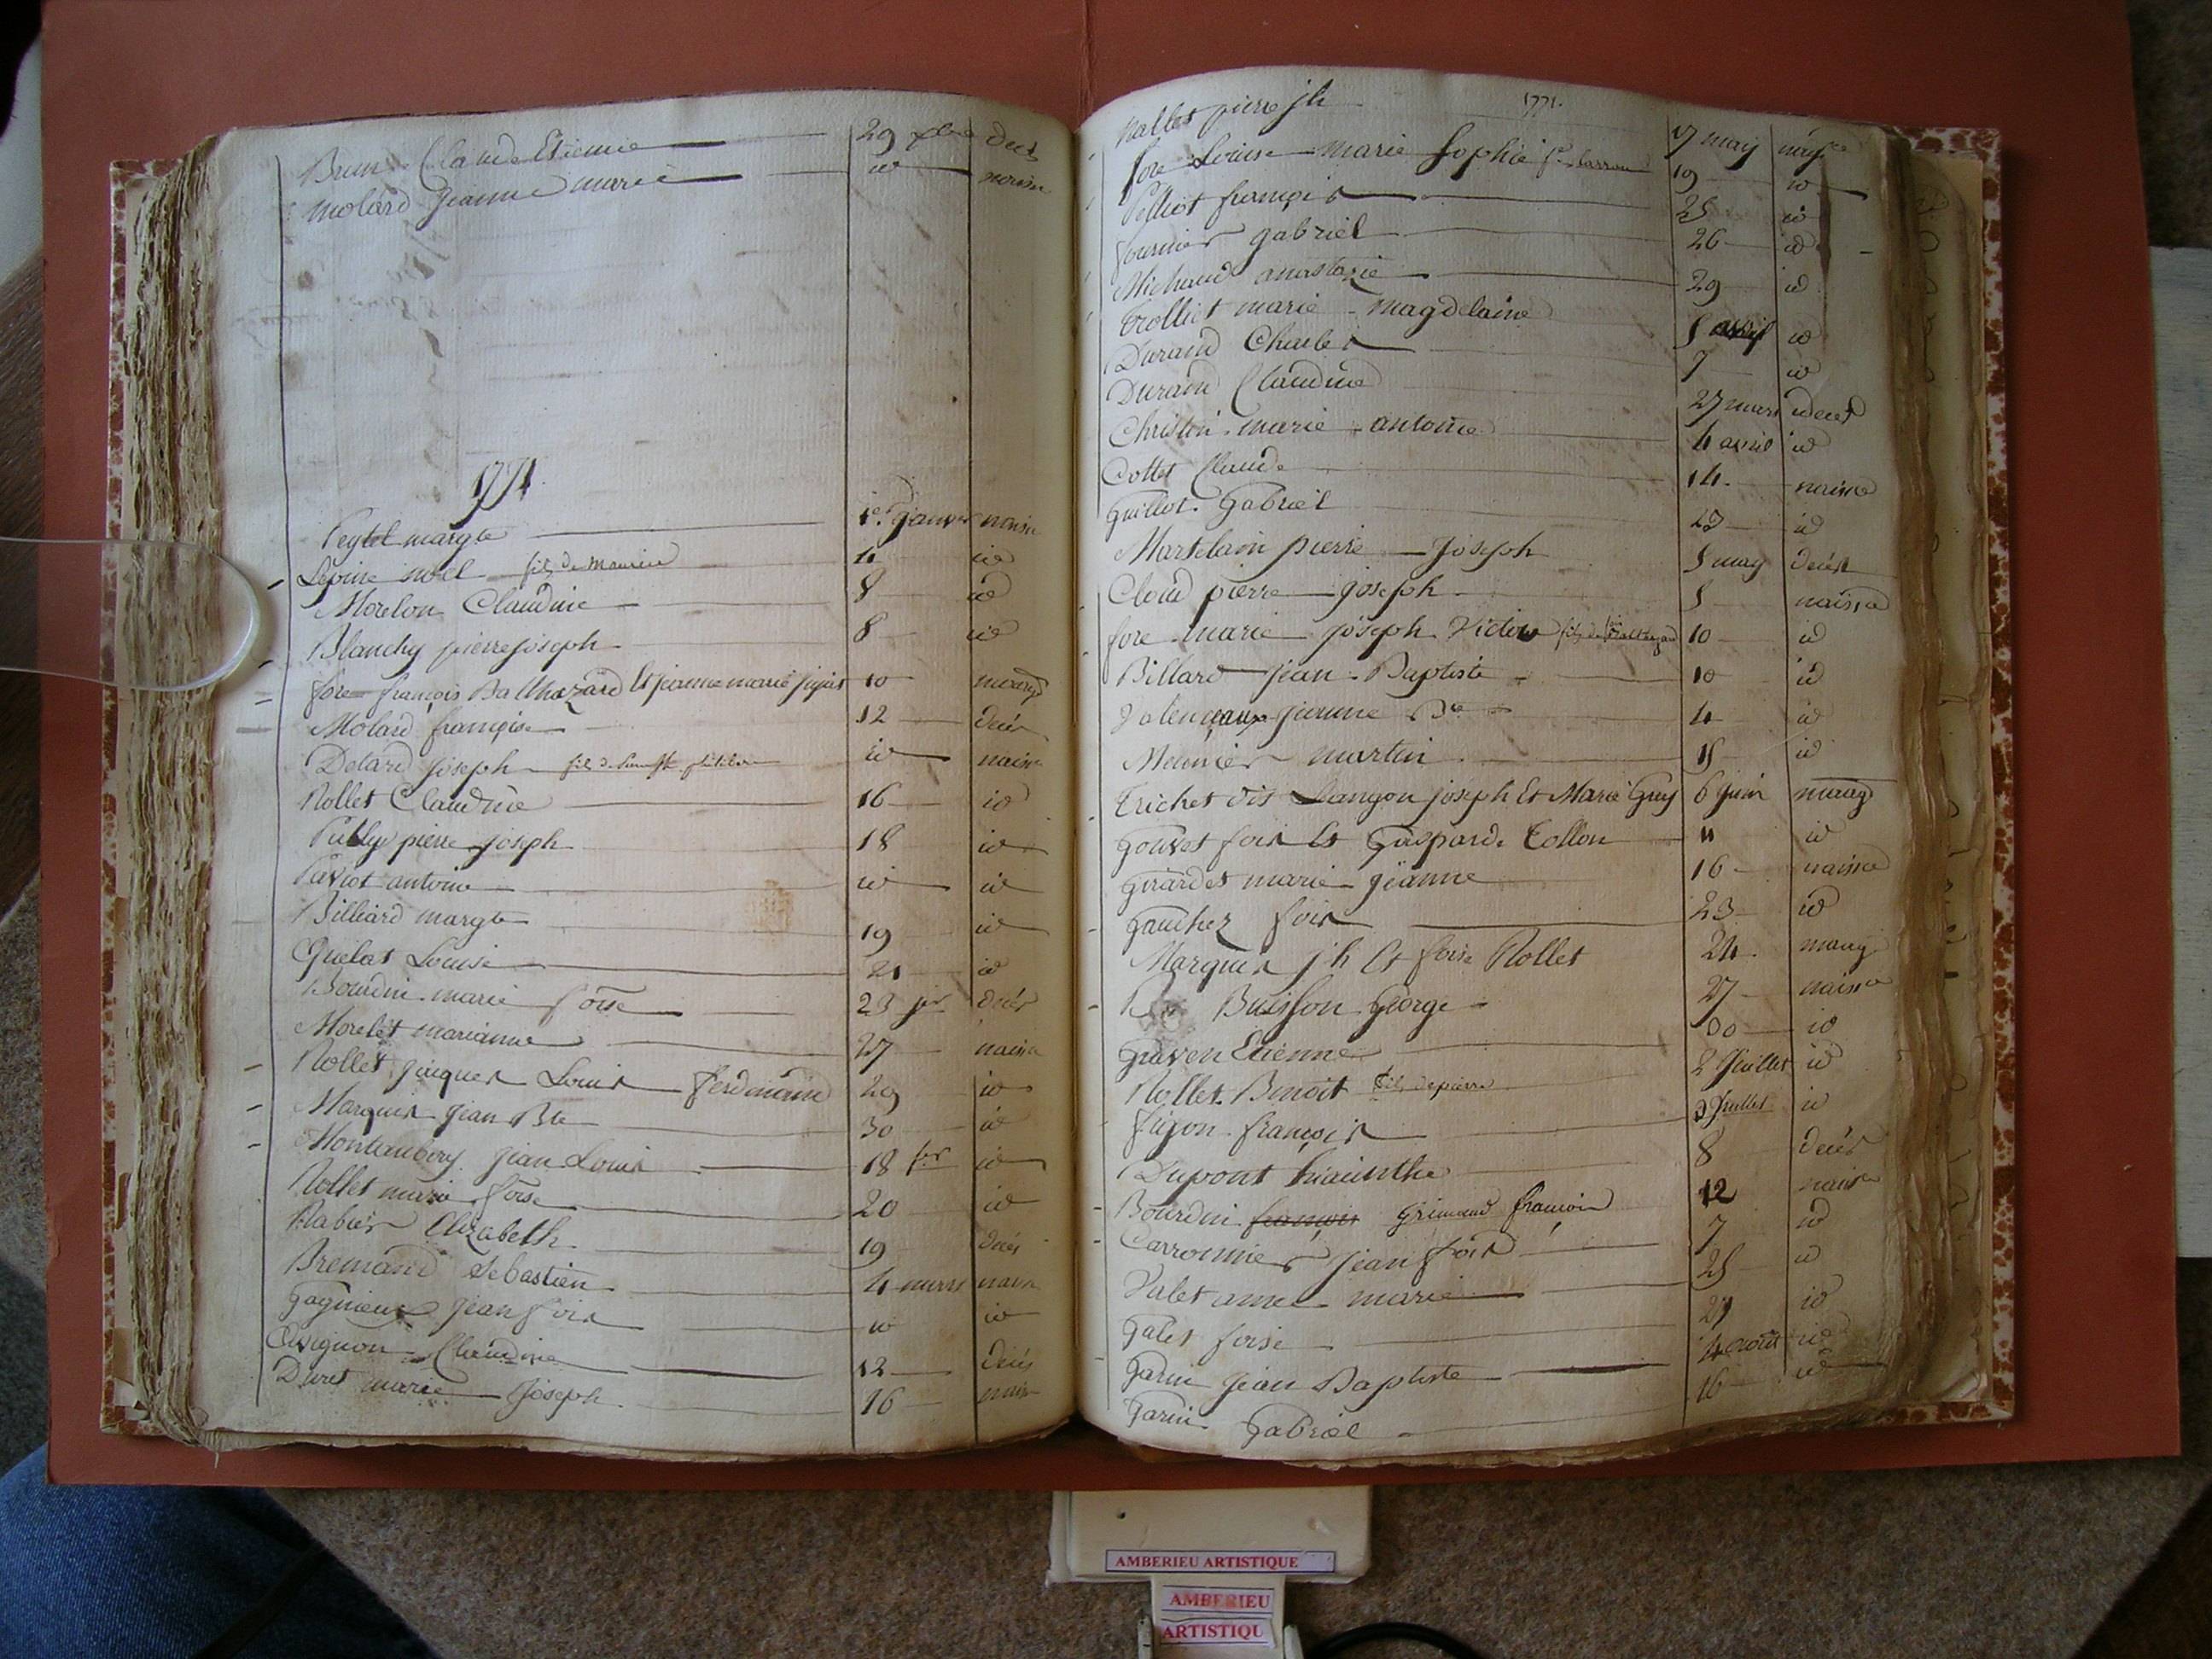 Brun Claude Etienne 29 xbre decès
Molard Jeanne marie id naissa
1771
Peytel margte 1er janvier naissa
Lepine noel fils de Maurice 4 id
Morelon Claudine 8 id
Blanchy pierre joseph 8 id
fore françois Balthazard Et jeanne marie 10 mariag
Molard françoise 12 decès
Detard joseph id naissa
Rollet Claudine 16 id
Pully pierre joseph 18 id
Paviot antoine id id
Billiard margte 19 id
Quelat Louise 21 id
Bourdin marie foise 23 jer decès
Morelet marianne 27 naissa
Rollet jacques Louis ferdinand 29 id
Marquis jean Bte 30 id
Montaubery jean Louis 18 fer id
Rollet marie foise 20 id
Rabier Elizabeth 19 decès
Bremand Sebastien 4 mars naissa
Gagnieux jean fois id id
Avignon Claudine 12 decès
Duret marie joseph 16 naiss
1771.
Rollet pierre jh 17 may naissce
fore Louise marie Sophie 19 id
Pelliot françois 25 id
fournier gabriel 26 id
Michaud anastazie 29 id
Trolliet marie magdelaine 5 avril id
Durand Charles 7 id
Durand Claudine 27 mars decès
Christin marie antoine 4 avril id
Cottet Claude 14 naissa
Guillot Gabriel 23 id
Martelain pierre joseph 5 may decès
Cloud pierre joseph 5 naissa
fore marie joseph Victor fils de Balthazard 10 id
Billard jean Baptiste 10 id
Valenceaux jeanne Bte 4 id
Meunier martin 15 id
Trichet dis Langon joseph Et Marie Guy 6 juin mariag
Gouvet fois Et Gaspard Tollon 11 id
Girardet marie jeanne 16 naissa
Gauchez fois 23 id
Marquis jh Et foise Rollet 24 mariag
Buisson George 27 naissa
Graven Etienne 30 id
Rollet Benoit fils de pierre 2 Juillet id
figon françois 3 Juillet id
Dupont hiacinthe 8 decès
Bourdin françois Grimaud françois 12 naissa
Carronnier jean fois 7 id
Valet anne marie 25 id
Galet foise 27 id
Garin jean Baptiste 4 aout id
Garin Gabriel 16 id
AMBERIEU ARTISTIQUE
AMBERIEU
ARTISTIQU